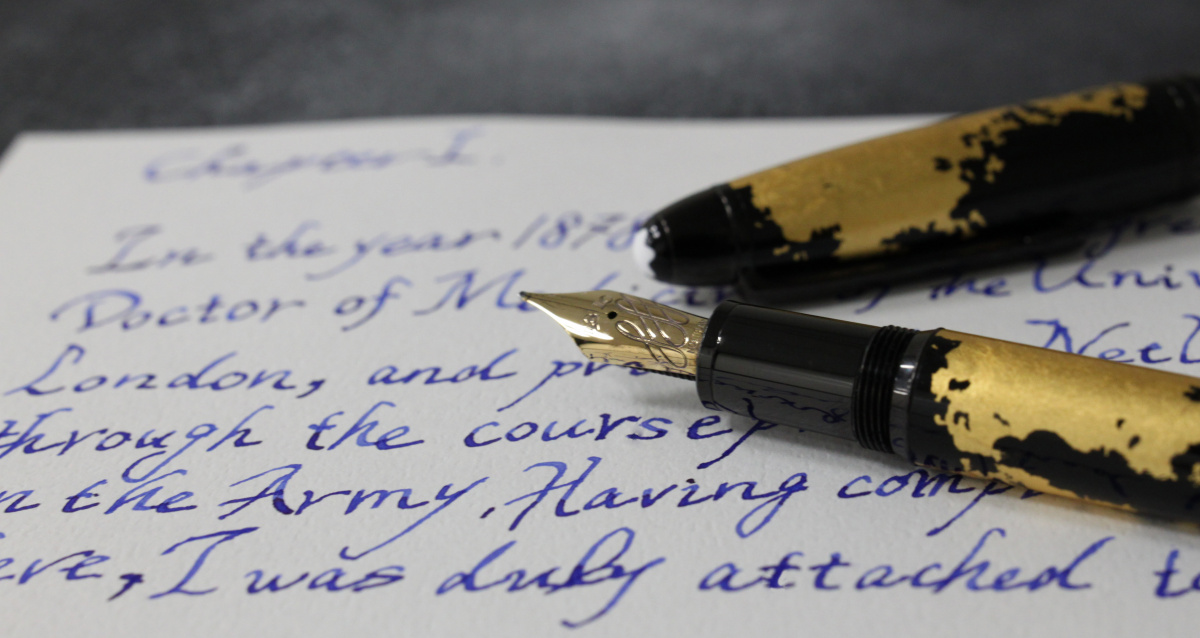 Chapter I.
In the year 1878
Doctor of the Univ
London, and
through the course
n the Army. Having comp
ere, I was duly attached to